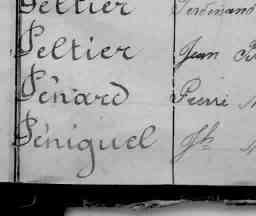 Peltier Ferdinand
Peltier Jean
Pénard Pierre
Péniguel Jh